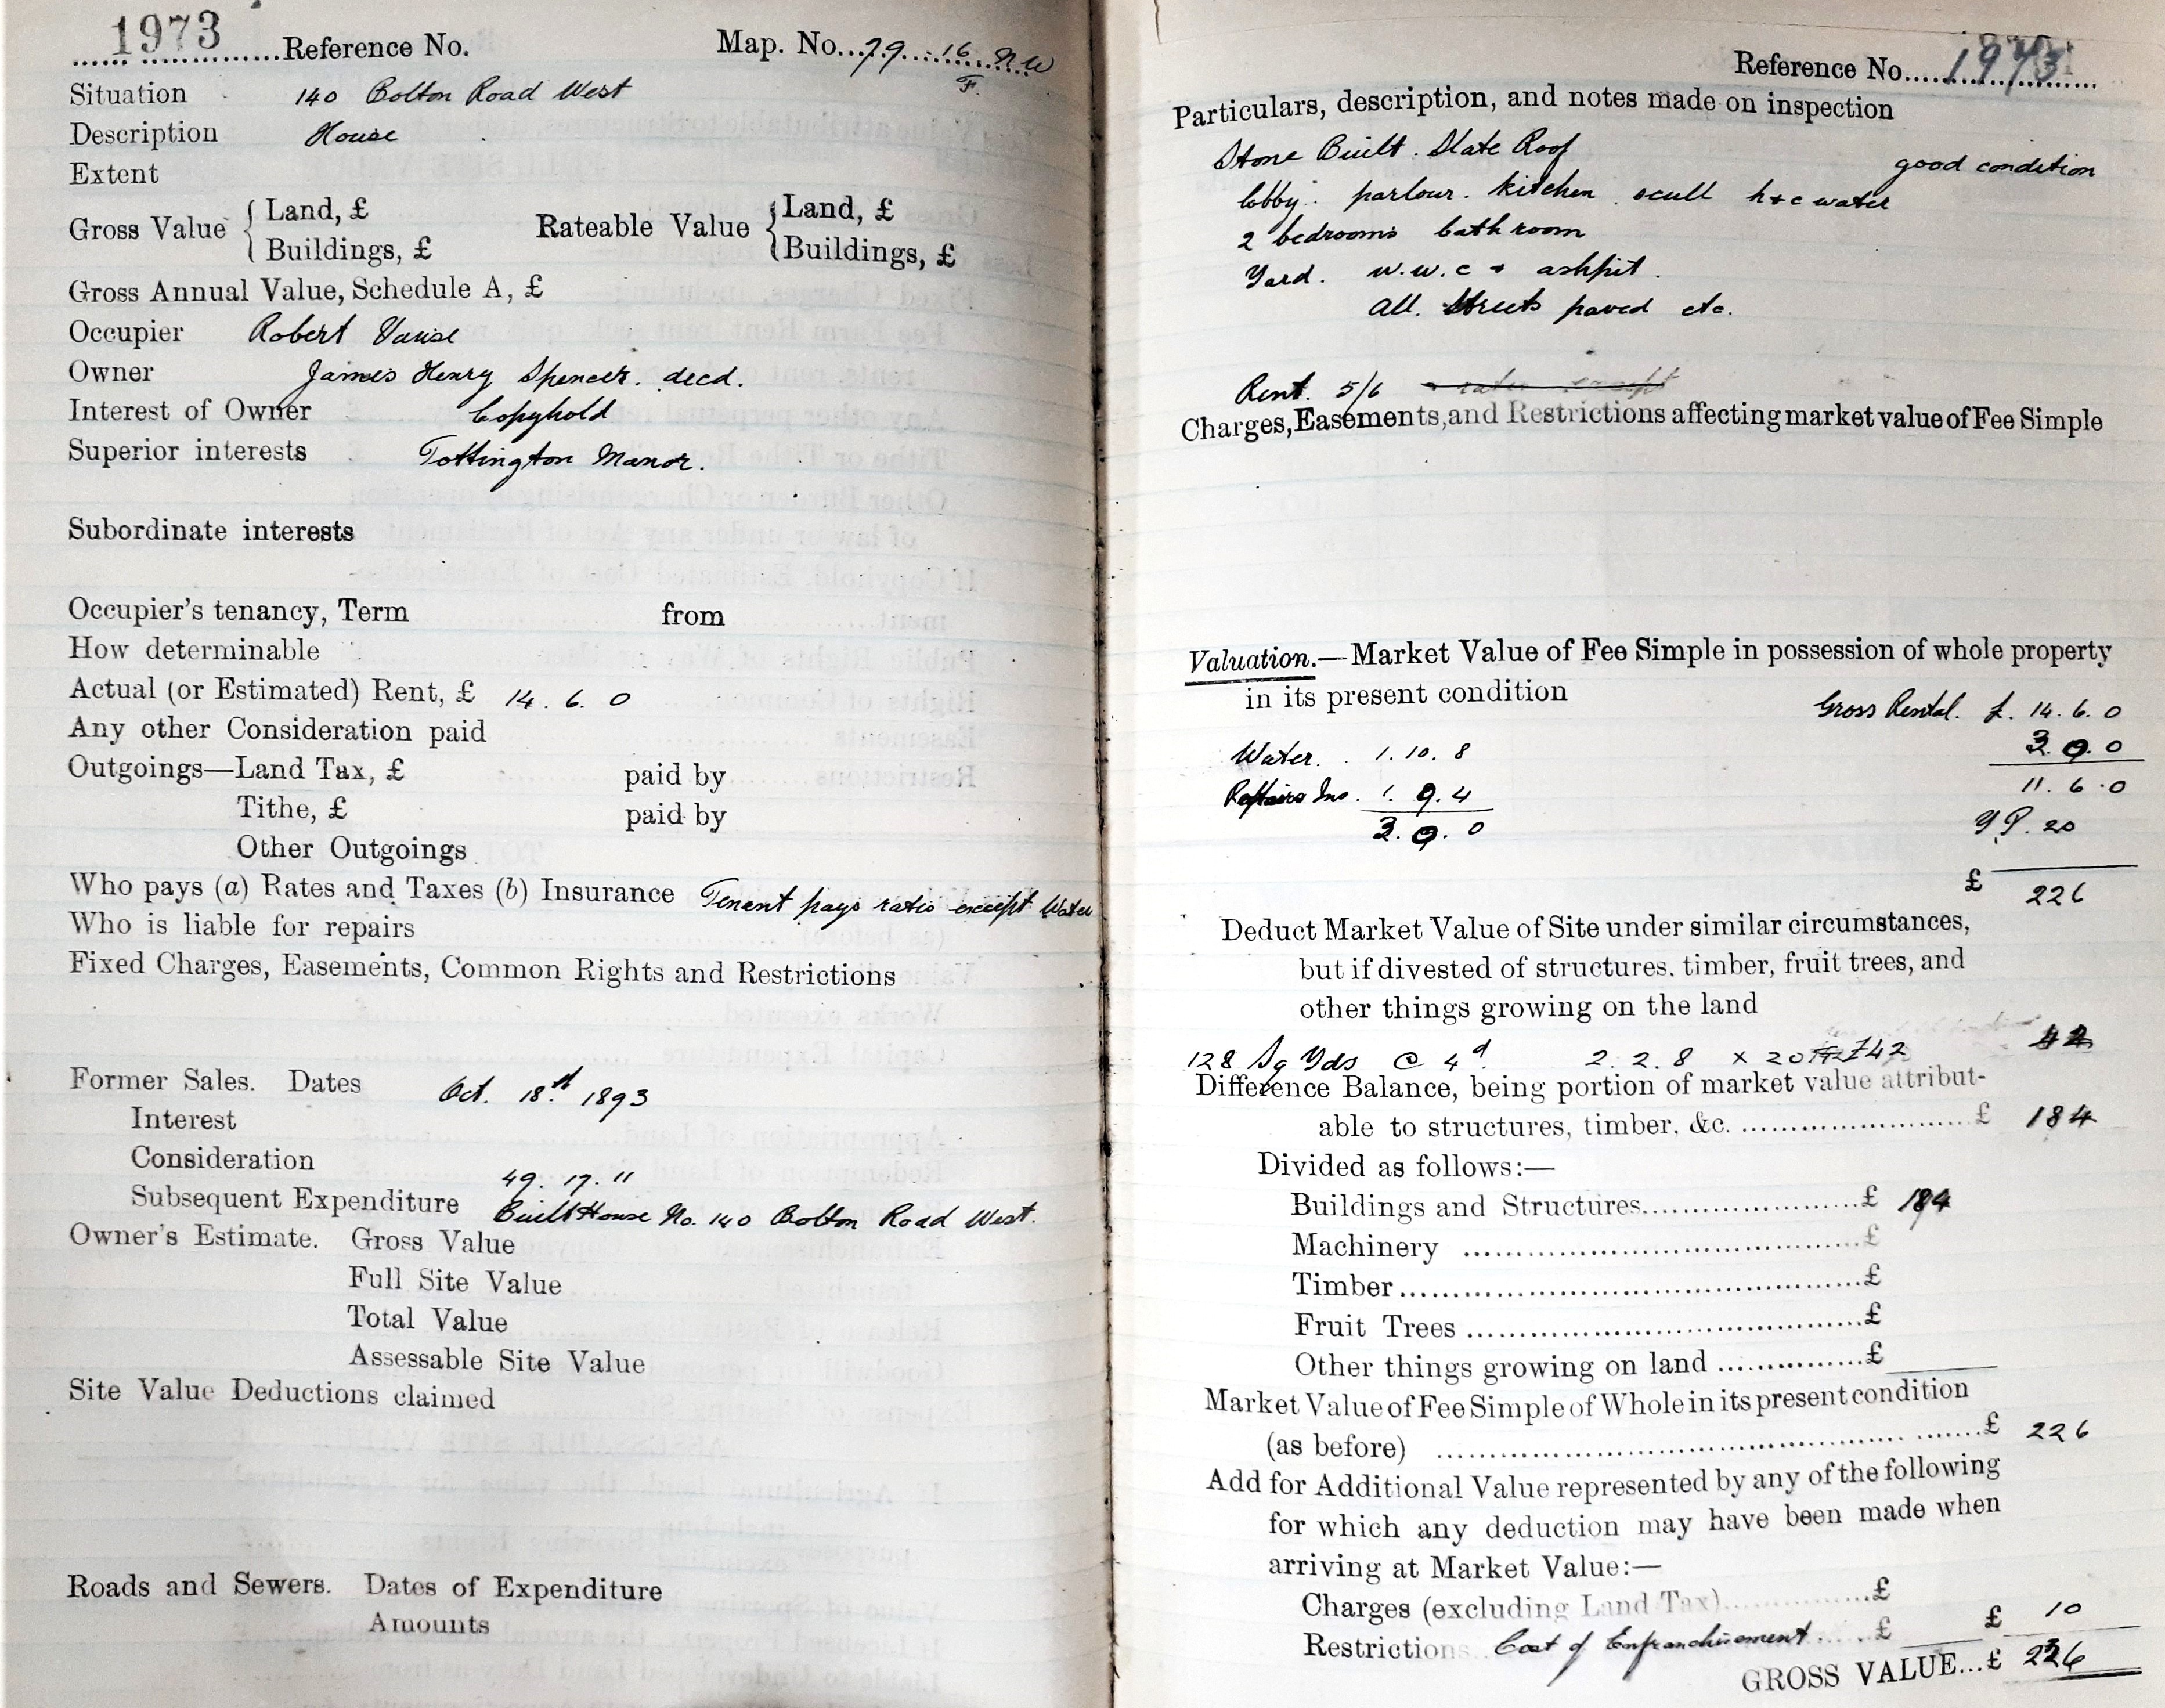 1973 Reference No. Map. No. 79. 16 N W
F.
Situation 140 Bolton Road West
Description House
Extent
Gross Value { Land, £ Rateable Value { Land, £
Buildings, £ Buildings, £
Gross Annual Value, Schedule A, £
Occupier Robert Vause
Owner James Henry Spencer. decd.
Interest of Owner Copyhold
Superior interests Tottington Manor.
Subordinate interests
Occupier's tenancy, Term from
How determinable
Actual (or Estimated) Rent, £ 14. 6. 0
Any other Consideration paid
Outgoings—Land Tax, £ paid by
Tithe, £ paid by
Other Outgoings
Who pays (a) Rates and Taxes (b) Insurance Tenant pays rates except Water
Who is liable for repairs
Fixed Charges, Easements, Common Rights and Restrictions
Former Sales. Dates Oct. 18th 1893
Interest
Consideration 49. 17. 11
Subsequent Expenditure Built House No. 140 Bolton Road West.
Owner's Estimate. Gross Value
Full Site Value
Total Value
Assessable Site Value
Site Value Deductions claimed
Roads and Sewers. Dates of Expenditure
Amounts
Reference No. 1973
Particulars, description, and notes made on inspection
Stone Built. Slate Roof good condition
lobby. parlour. kitchen. scull h & c water
2 bedrooms bathroom
Yard. w.w.c & ashpit.
All. Streets paved etc.
Rent. 5/6 rates except
Charges, Easements, and Restrictions affecting market value of Fee Simple
Valuation.—Market Value of Fee Simple in possession of whole property
in its present condition Gross Rental. £. 14. 6. 0
Water. 1. 10. 8 3. 0. 0
Repairs Ins. 1. 9. 4 11. 6. 0
3. 0. 0 Y P. 20
£ 226
Deduct Market Value of Site under similar circumstances,
but if divested of structures. timber, fruit trees, and
other things growing on the land
128 Sq Yds @ 4d 2. 2. 8 x 20 = £42 42
Difference Balance, being portion of market value attribut-
able to structures, timber, &c. £ 184
Divided as follows:—
Buildings and Structures £ 184
Machinery £
Timber £
Fruit Trees £
Other things growing on land £
Market Value of Fee Simple of Whole in its present condition
(as before) £ 226
Add for Additional Value represented by any of the following
for which any deduction may have been made when
arriving at Market Value:—
Charges (excluding Land Tax) £
Restrictions Cost of Enfranchisement £ £ 10
GROSS VALUE...£ 236